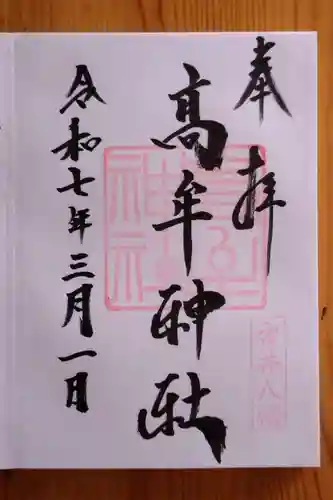 奉拝
高牟神社
令和七年三月一日